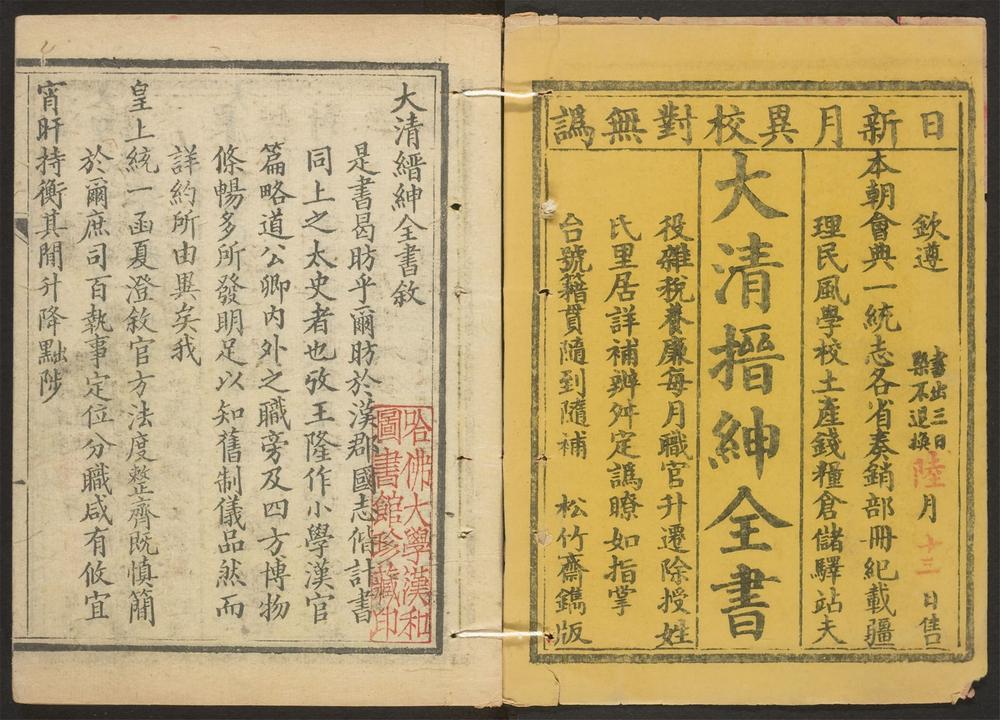 日新月異校對無譌
欽遵
書出三日
槩不退換
陸月十三日售
本朝會典一統志各省奏銷部冊紀載疆
理民風學校土產錢糧倉儲驛站夫
大清搢紳全書
役雜稅養廉每月職官升遷除授姓
氏里居詳補辨舛定譌瞭如指掌
台號籍貫隨到隨補 松竹齋鐫版
大清縉紳全書敘
是書曷昉乎爾昉於漢郡國志偕計書
同上之太史者也攷王隆作小學漢官
篇略道公卿內外之職旁及四方博物
條暢多所發明足以知舊制儀品然而
詳約所由異矣我
皇上統一函夏澄敘官方法度整齊既慎簡
於爾庶司百執事定位分職咸有攸宜
宵旰持衡其閒升降黜陟
哈佛大學漢和
圖書館珍藏印